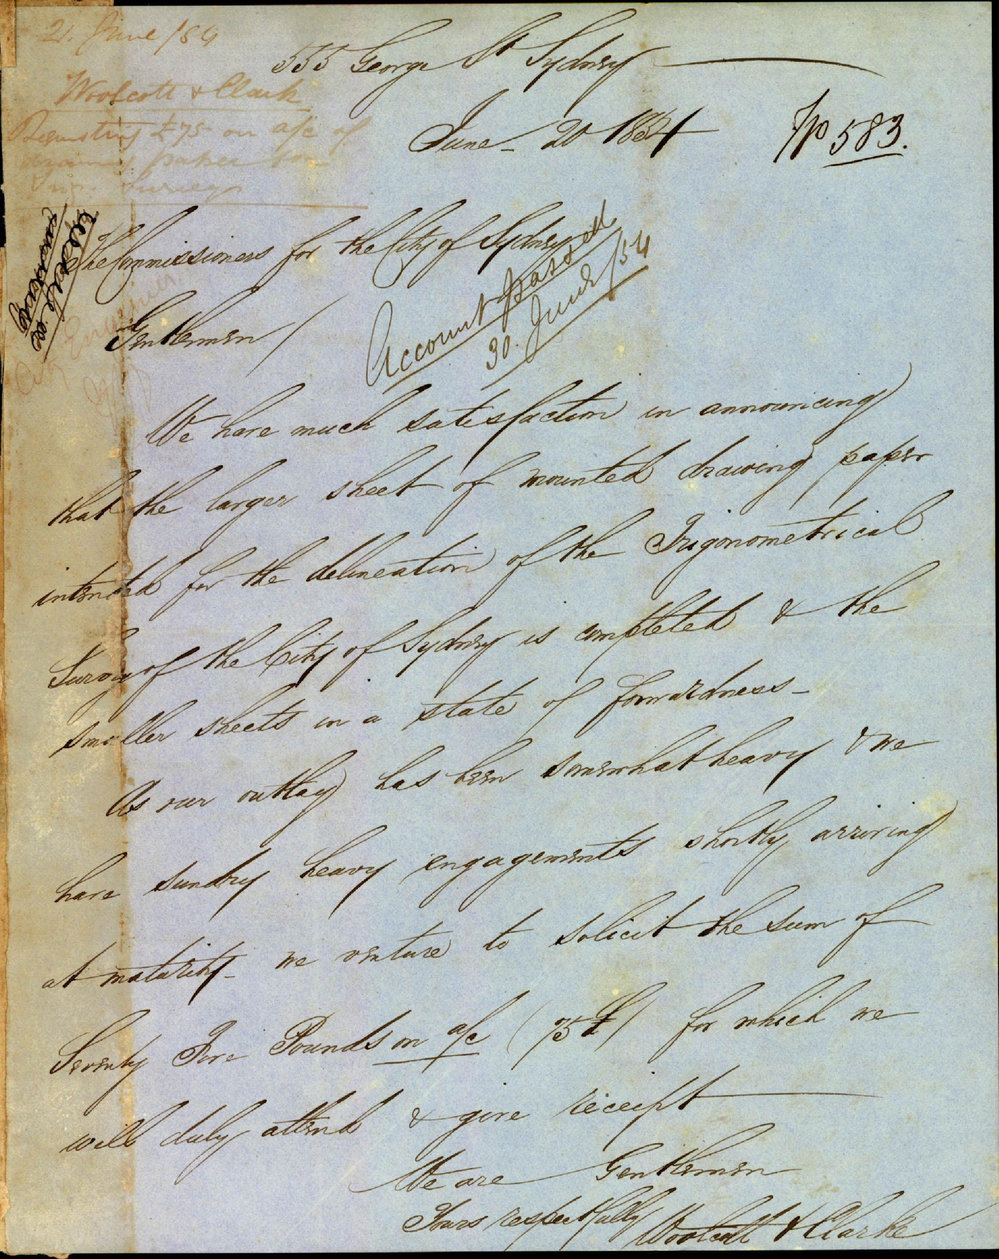 2. June /54
Woolcott & Clark
Requesting £75 on a/c of
drawing paper for
Trig. Survey
555 George St Sydney
June 20 1854
No 583.
The Commissioners for the City of Sydney
Gentlemen /
Account passed
30. June /54
We have much satisfaction in announcing
that the larger sheet of mounted drawing paper
intended for the delineation of the Trigonometrical
Survey of the City of Sydney is completed & the
smaller sheets in a state of forwardness -
As our outlay has been somewhat heavy & we
have sundry heavy engagements shortly arriving
at maturity - we venture to solicit the sum of
Seventy Five Pounds on a/c (75 £) for which we
will duly attend & give receipt
We are Gentlemen
Yours respectfully Woolcott & Clarke
City Engineer